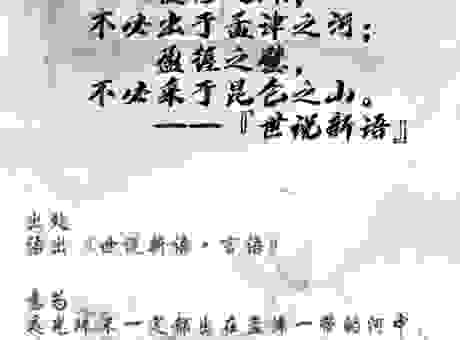 不必出于孟津之河;
盈握之璧,
不必采于昆仑之山。
——『世说新语』
出处
语出《世说新语·言语》
意为
夜光珠不一定都出在孟津一带的河中,